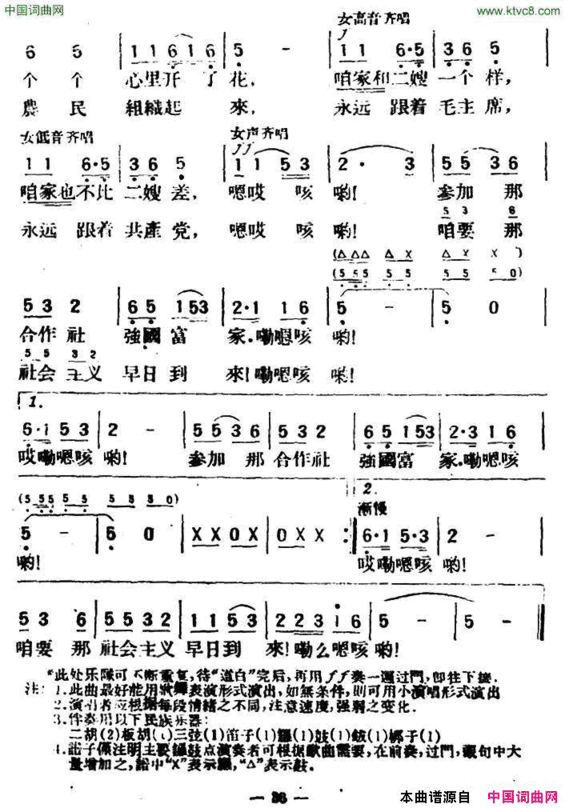 中国词曲网
www.ktvc8.com
女高音齐唱
ff
6 5 | 1 1 6 1 6 | 5 - | 1 1 6·5 | 3 6 5
个 个 心里开了花, 咱家和二嫂一个样,
農 民 組織起 來, 永远跟着毛主席,
女低音齐唱 女声齐唱
ff
1 1 6·5 | 3 6 5 | 1 1 5 3 | 2· 3 | 5 5 3 6
咱家也不比二嫂差, 嗯哎咳喲! 参加那
永远跟着共產党, 嗯哎咳喲! 咱要那
5 3 6
(△△△ △ X △ X X)
(5 5 5 5 5 5 5 5 0)
5 3 2 | 6 5 1 5 3 | 2·1 1 6 | 5 - | 5 0
合作社 強國富 家·嘞嗯咳 喲!
5 5 3 2
社会主义 早日到 來!嘞嗯咳 喲!
1.
6·1 5 3 | 2 - | 5 5 3 6 | 5 3 2 | 6 5 1 5 3 | 2·3 1 6
哎嘞嗯咳 喲! 参加那 合作社 強國富 家·嘞嗯咳
(5 5 5 5 5 5 5 3 3 0)
2.
渐慢
5 - | 5 0 | X X 0 X | 0 X X 0 :| 6·1 5·3 | 2 -
喲! 哎嘞嗯咳 喲!
5 3 6 | 5 5 3 2 | 1 1 5 3 | 2 2 3 1 6 | 5 - | 5 0
咱要那 社会主义 早日到 來!嘞么嗯咳 喲!
*此处乐隊可不断重复,待“道白”完后,再用ff奏一遍过門,即往下接.
注: 1.此曲最好能用表演形式演出,如無条件,則可用小演唱形式演出
2.演唱者应根据每段情緒之不同,注意速度,強弱之变化.
3.伴奏用以下民族乐器:
二胡(2)板胡(1)三弦(1)笛子(1)鑼(1)鼓(1)鈸(1)梆子(1)
4.譜子僅注明主要鑼鼓点演奏者可根据歌曲需要,在前奏,过門,襯句中大
量增加之,譜中“X”表示鑼,“△”表示鼓.
— 36 —
本曲谱源自
中国词曲网